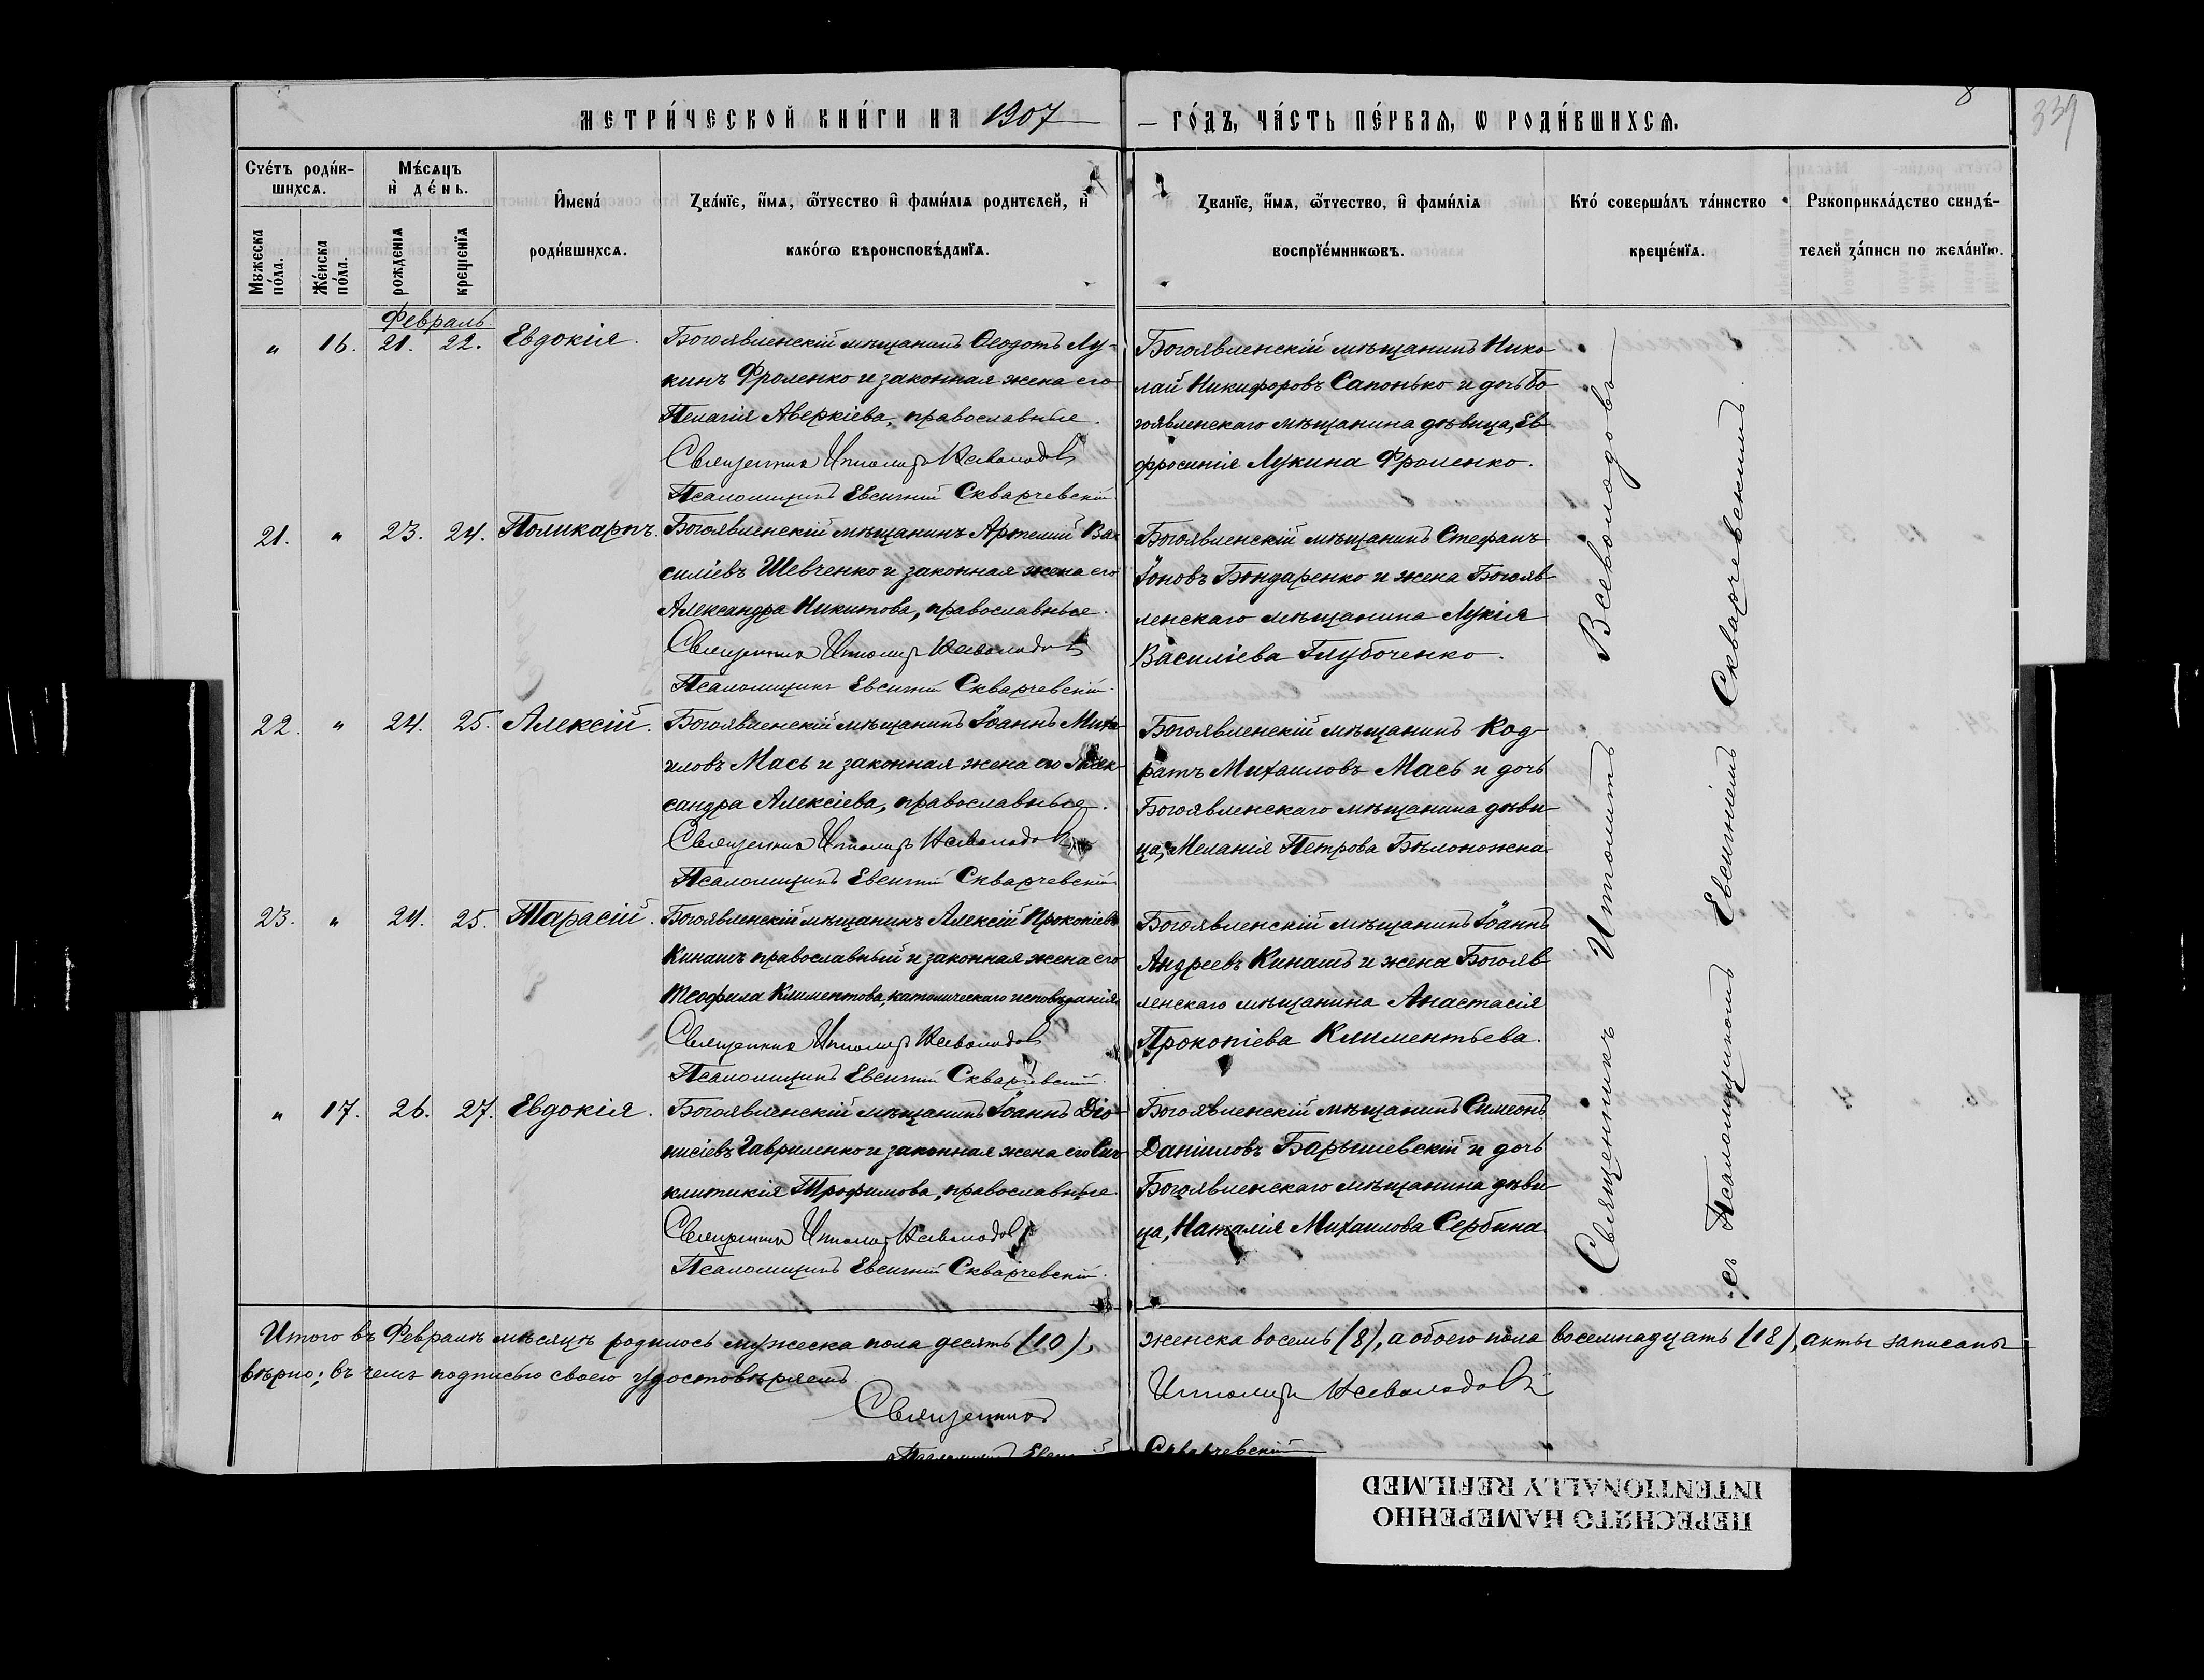 8
339
МЕТРИ́ЧЕСКОЙ КНИ́ГИ НА 1907
ГО́ДЪ, ЧА́СТЬ ПЕ́РВАѦ, Ѡ РОДИ́ВШИХСѦ.
Счетъ роди́вшихсѧ.
Мѣ́сѧцъ и де́нь.
Мꙋжеска по́ла.
Же́нска по́ла.
рожденїѧ
крещенїѧ
И҆мена́ роди́вшихсѧ.
Зва́нїе, и҆́мѧ, ѻ҆́тчество и҆ фами́лїѧ родителей, и҆ како́гѡ вѣроисповѣ́данїѧ.
Зва́нїе, и҆́мѧ, ѻ҆́тчество, и҆ фами́лїѧ воспрїе́мникѡвъ.
Кто́ соверша́лъ та́инство креще́нїѧ.
Рꙋкоприкла́дство свидѣ́телей за́писи по жела́нїю.
Февраль
" 16. 21. 22. Евдокія.
Богоявленскій мѣщанинъ Ѳеодотъ Лу-
кинъ Фроленко и законная жена его
Пелагія Аверкіева, православные.
Священникъ Ипполитъ Всеволодовъ
Псаломщикъ Евсигній Скварчевскій.
Богоявленскій мѣщанинъ Нико-
лай Никифоровъ Сапонько и дочь Бо-
гоявленскаго мѣщанина дѣвица, Ев-
фросинія Лукина Фроленко.
21. " 23. 24. Поликарпъ.
Богоявленскій мѣщанинъ Артемий Ва-
силіевъ Шевченко и законная жена его
Александра Никитова, православные.
Священникъ Ипполитъ Всеволодовъ
Псаломщикъ Евсигній Скварчевскій.
Богоявленскій мѣщанинъ Стефанъ
Іоновъ Бондаренко и жена Богояв-
ленскаго мѣщанина Лукія
Василіева Глубоченко.
22. " 24. 25. Алексій.
Богоявленскій мѣщанинъ Іоаннъ Миха-
иловъ Мась и законная жена его Алек-
сандра Алексіева, православные.
Священникъ Ипполитъ Всеволодовъ
Псаломщикъ Евсигній Скварчевскій
Богоявленскій мѣщанинъ Код-
ратъ Михаиловъ Мась и дочь
Богоявленскаго мѣщанина дѣви-
ца, Меланія Петрова Бѣлоножка.
23. " 24. 25. Тарасій.
Богоявленскій мѣщанинъ Алексій Прокопіевъ
Кинашъ православный и законная жена его
Теофила Климентова, католическаго исповѣданія
Священникъ Ипполитъ Всеволодовъ
Псаломщикъ Евсигній Скварчевскій.
Богоявленскій мѣщанинъ Іоаннъ
Андреевъ Кинашъ и жена Богояв-
ленскаго мѣщанина Анастасія
Прокопіева Климентьева.
" 17. 26. 27. Евдокія.
Богоявленскій мѣщанинъ Іоаннъ Діо-
нисіевъ Гавриленко и законная жена его Син-
клитикія Трофимова, православные.
Священникъ Ипполитъ Всеволодовъ
Псаломщикъ Евсигній Скварчевскій.
Богоявленскій мѣщанинъ Симеонъ
Даніиловъ Барышевскій и дочь
Богоявленскаго мѣщанина дѣви-
ца, Наталія Михаилова Сербина.
Священникъ Ипполитъ Всеволодовъ
съ Псаломщикомъ Евсигніемъ Скварчевскимъ.
Итого въ Февралѣ мѣсяцѣ родилось мужеска пола десять (10), женска восемь (8), а обоего пола восемнадцать (18), акты записаны
вѣрно; въ чемъ подписью своею удостовѣряемъ
Священникъ Ипполитъ Всеволодовъ
Псаломщикъ Евсигній Скварчевскій
ПЕРЕСНЯТО НАМЕРЕННО
INTENTIONALLY REFILMED